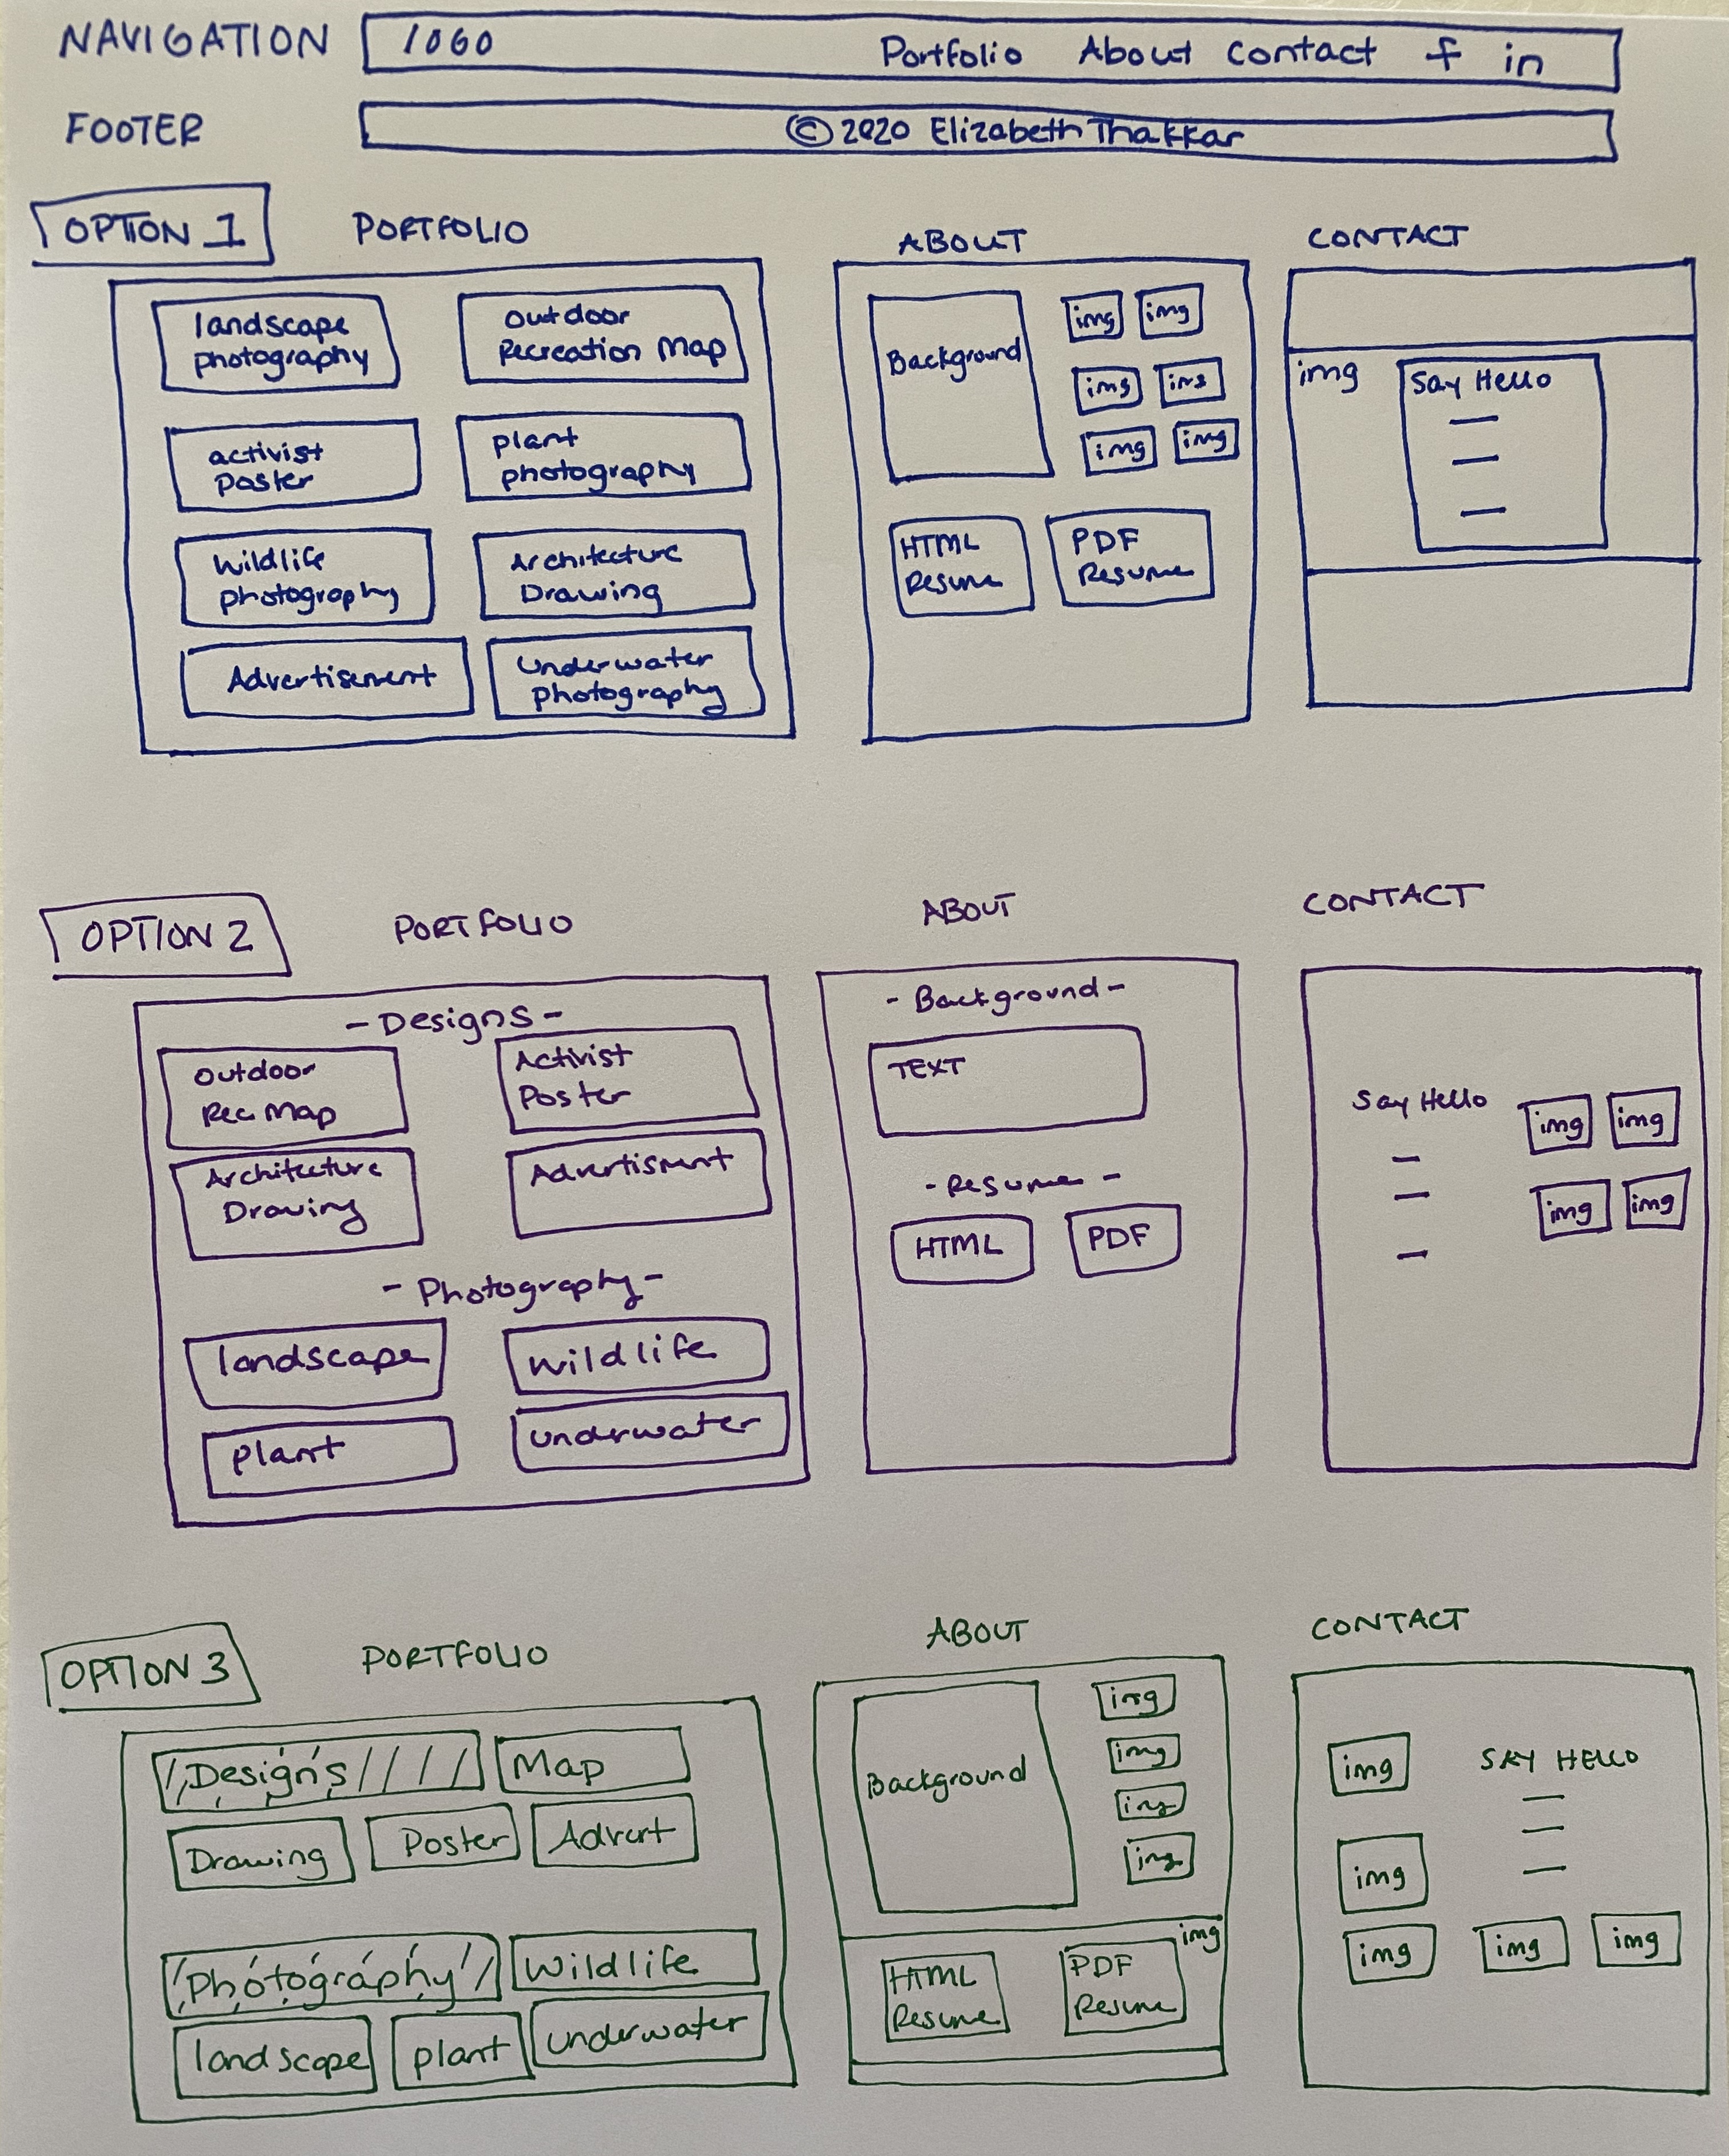 NAVIGATION
logo Portfolio About Contact f in
FOOTER
© 2020 Elizabeth Thakkar
OPTION 1
PORTFOLIO
landscape
photography
outdoor
Recreation Map
activist
poster
plant
photography
Wildlife
photography
Architecture
Drawing
Advertisement
Underwater
photography
ABOUT
Background
img img
img img
img img
HTML
Resume
PDF
Resume
CONTACT
img
Say Hello
OPTION 2
PORTFOLIO
- Designs -
Outdoor
Rec Map
Activist
Poster
Architecture
Drawing
Advertisment
- Photography -
landscape
wildlife
plant
underwater
ABOUT
- Background -
TEXT
- Resume -
HTML
PDF
CONTACT
Say Hello
img img
img img
OPTION 3
PORTFOLIO
Designs
Map
Drawing
Poster
Advert
Photography
Wildlife
landscape
plant
underwater
ABOUT
Background
img
img
img
img
img
HTML
Resume
PDF
Resume
CONTACT
img
SAY HELLO
img
img
img
img